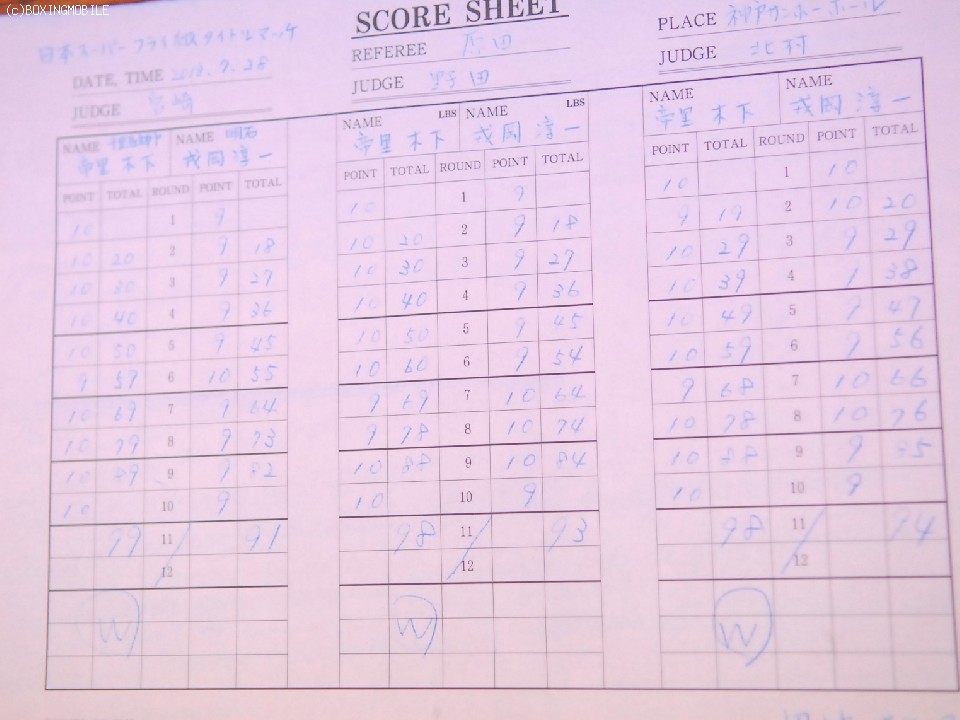 (c)BOXINGMOBILE
SCORE SHEET
日本スーパーフライ級タイトルマッチ
REFEREE 原田
PLACE 神戸サンボーホール
DATE, TIME 7.28
JUDGE 宮崎
JUDGE 野田
JUDGE 北村
NAME NAME 明石
帝里 木下 戎岡 淳一
POINT TOTAL ROUND POINT TOTAL
10 1 9
10 20 2 9 18
10 30 3 9 27
10 40 4 9 36
10 50 5 9 45
9 59 6 10 55
10 69 7 9 64
10 79 8 9 73
10 89 9 9 82
10 10 9
99 11 91
12
W
NAME LBS NAME LBS
帝里 木下 戎岡 淳一
POINT TOTAL ROUND POINT TOTAL
10 1 9
10 20 2 9 18
10 30 3 9 27
10 40 4 9 36
10 50 5 9 45
10 60 6 9 54
9 69 7 10 64
9 78 8 10 74
10 88 9 10 84
10 10 9
98 11 93
12
W
NAME NAME
帝里 木下 戎岡 淳一
POINT TOTAL ROUND POINT TOTAL
10 1 10
9 19 2 10 20
10 29 3 9 29
10 39 4 9 38
10 49 5 9 47
10 59 6 9 56
9 68 7 10 66
10 78 8 10 76
10 88 9 9 85
10 10 9
98 11 94
12
W